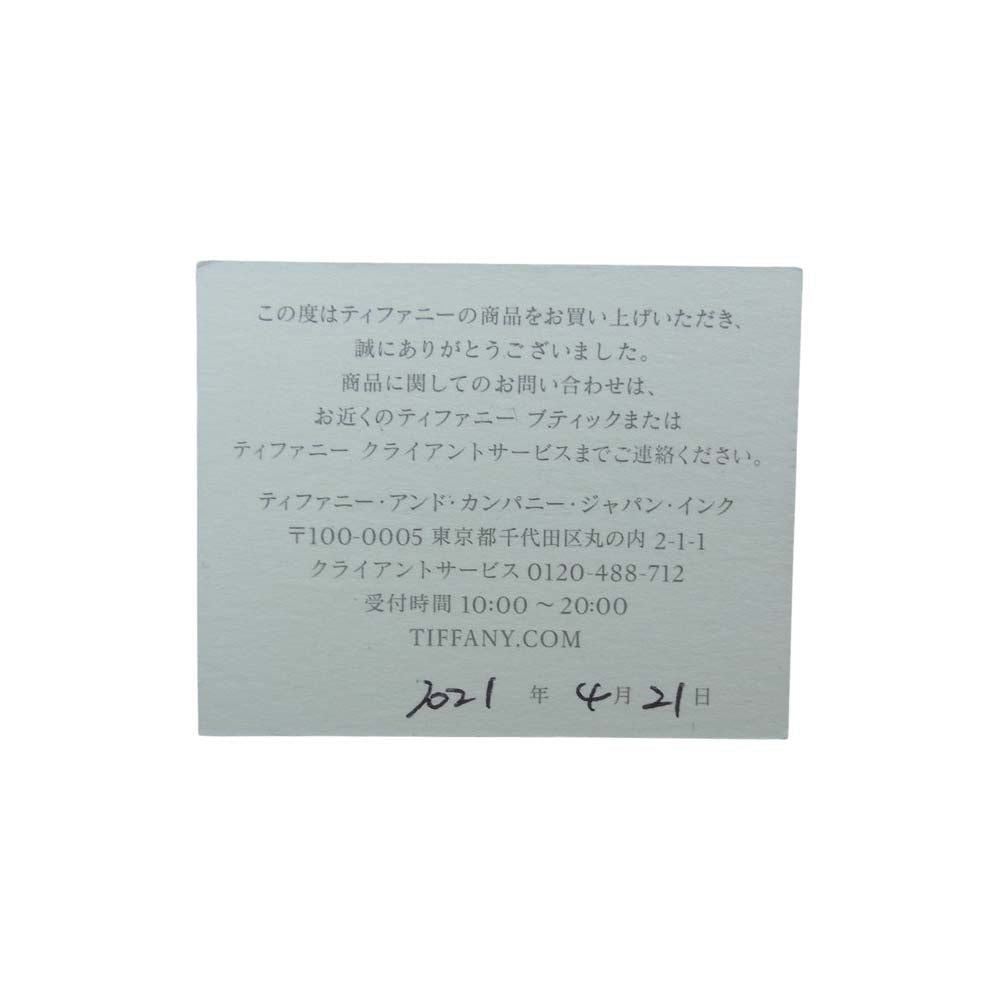 この度はティファニーの商品をお買い上げいただき、
誠にありがとうございました。
商品に関してのお問い合わせは、
お近くのティファニー ブティックまたは
ティファニー クライアントサービスまでご連絡ください。
ティファニー・アンド・カンパニー・ジャパン・インク
〒100-0005 東京都千代田区丸の内 2-1-1
クライアントサービス 0120-488-712
受付時間 10:00 〜 20:00
TIFFANY.COM
2021 年 4月 21日